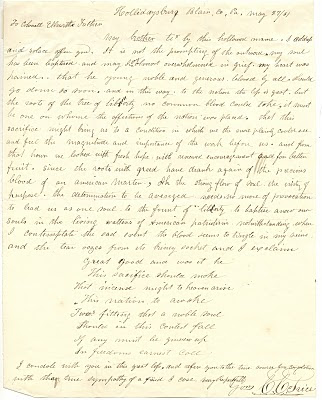 Hollidaysburg Blair, Co, Pa. May 27/61
To Colonel Ellsworth's Father
My father for by this hallowed name I
solace offer you. It is not the promptings of the outward, my soul
has been baptized and may I almost overwhelmed in grief, my heart was
pained. that he young noble and generous, beloved by all should
go down so soon, and in this way, to the nation she life is past. but
the roots of the tree of liberty no common blood could soke, it must
be one on whome the affections of the nation was placed. that this
sacrifice might bring us to a condition in which we the more plainly could see
and feel the magnitude and importance of the work before us. and from
that hour we labor with fresh hope with renewed encouragement for better
fruit. Since the roots with greed have drank again of the precious
blood of an american Martyr, Oh the strong flow of soul the entity of
purpose the determination to be avenged needs no more of provocation
to lead us as one soul to the fount of liberty to baptize anew our
souls in the living waters of American patriotism notwithstanding when
I contemplate the sad event the blood seems to tingle in my veins
and the tear oozes from its briney socket and I exclaim
Great God and was it he
This sacrifice should make
This incense might to heaven arise
This nation to awake
Twas fitting that a noble soul
Should in this contest fall
If any must be given up
In freedoms earnest call
I condole with you in the great loss, and offer you the
with the true sympathy of a friend
Yours